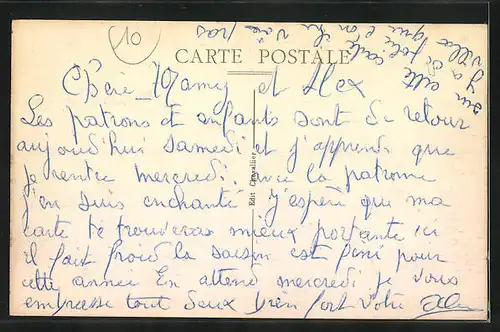 10
CARTE POSTALE
Chère Mamy et Alex
Les patrons et enfants sont de retour
aujourd'hui samedi et j'apprends que
je rentre mercredi avec la patronne
j'en suis enchanté j'espère que ma
carte te trouveras mieux portante ici
il fait froid la saison est fini pour
cette année En attend mercredi je vous
embrasse tout deux bien fort Votre
Edit Chevallier
sur cette carte
il y a de
ville que l'on
ne voie pas